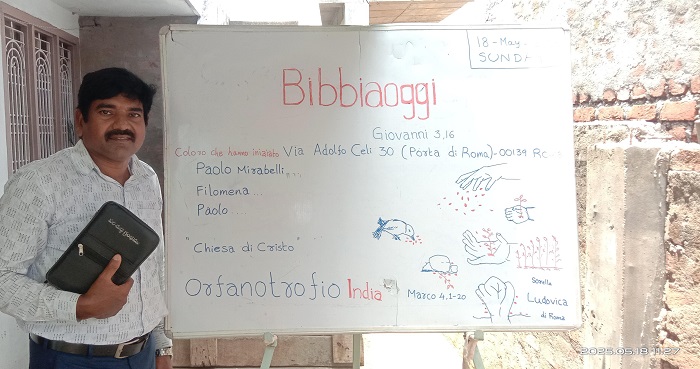 18-May
SUNDA
Bibbiaoggi
Giovanni 3,16
Coloro che hanno iniziato Via Adolfo Celi 30 (Porta di Roma)-00139 Ro
Paolo Mirabelli,...
Filomena ...
Paolo
"Chiesa di Cristo"
Orfanotrofio India
Marco 4,1-20
Sorella
Ludovica
di Roma
2025.05.18 11:27